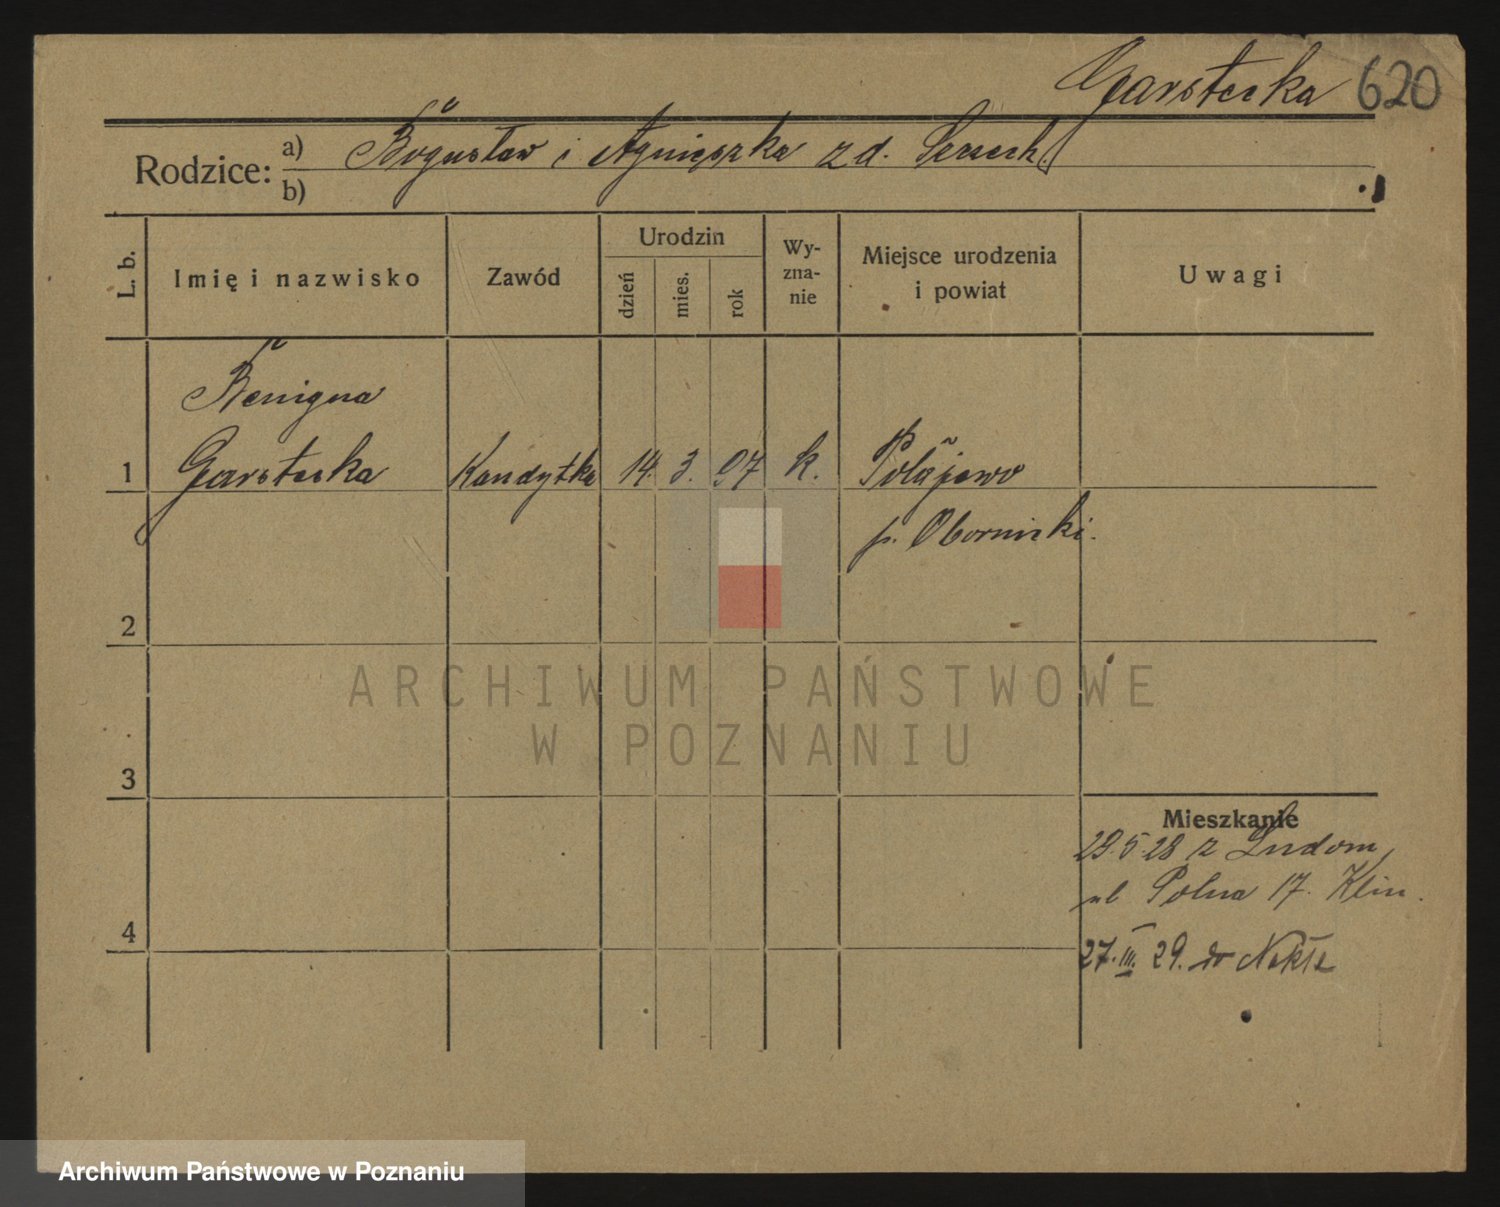 Garstecka 620
Rodzice: a) Bogusław i Agnieszka z d.
b)
L. b.
Imię i nazwisko
Zawód
Urodzin
dzień
mies.
rok
Wy-
zna-
nie
Miejsce urodzenia
i powiat
Uwagi
Benigna
1 Garstecka Kandytka 14. 3. 97 k. Połajewo
p. Obornicki.
2
ARCHIWUM PAŃSTWOWE
W POZNANIU
3
Mieszkanie
29.5.28 z Ludom
ul Polna 17. Klin.
4
27.III.29. do Nekle
Archiwum Państwowe w Poznaniu